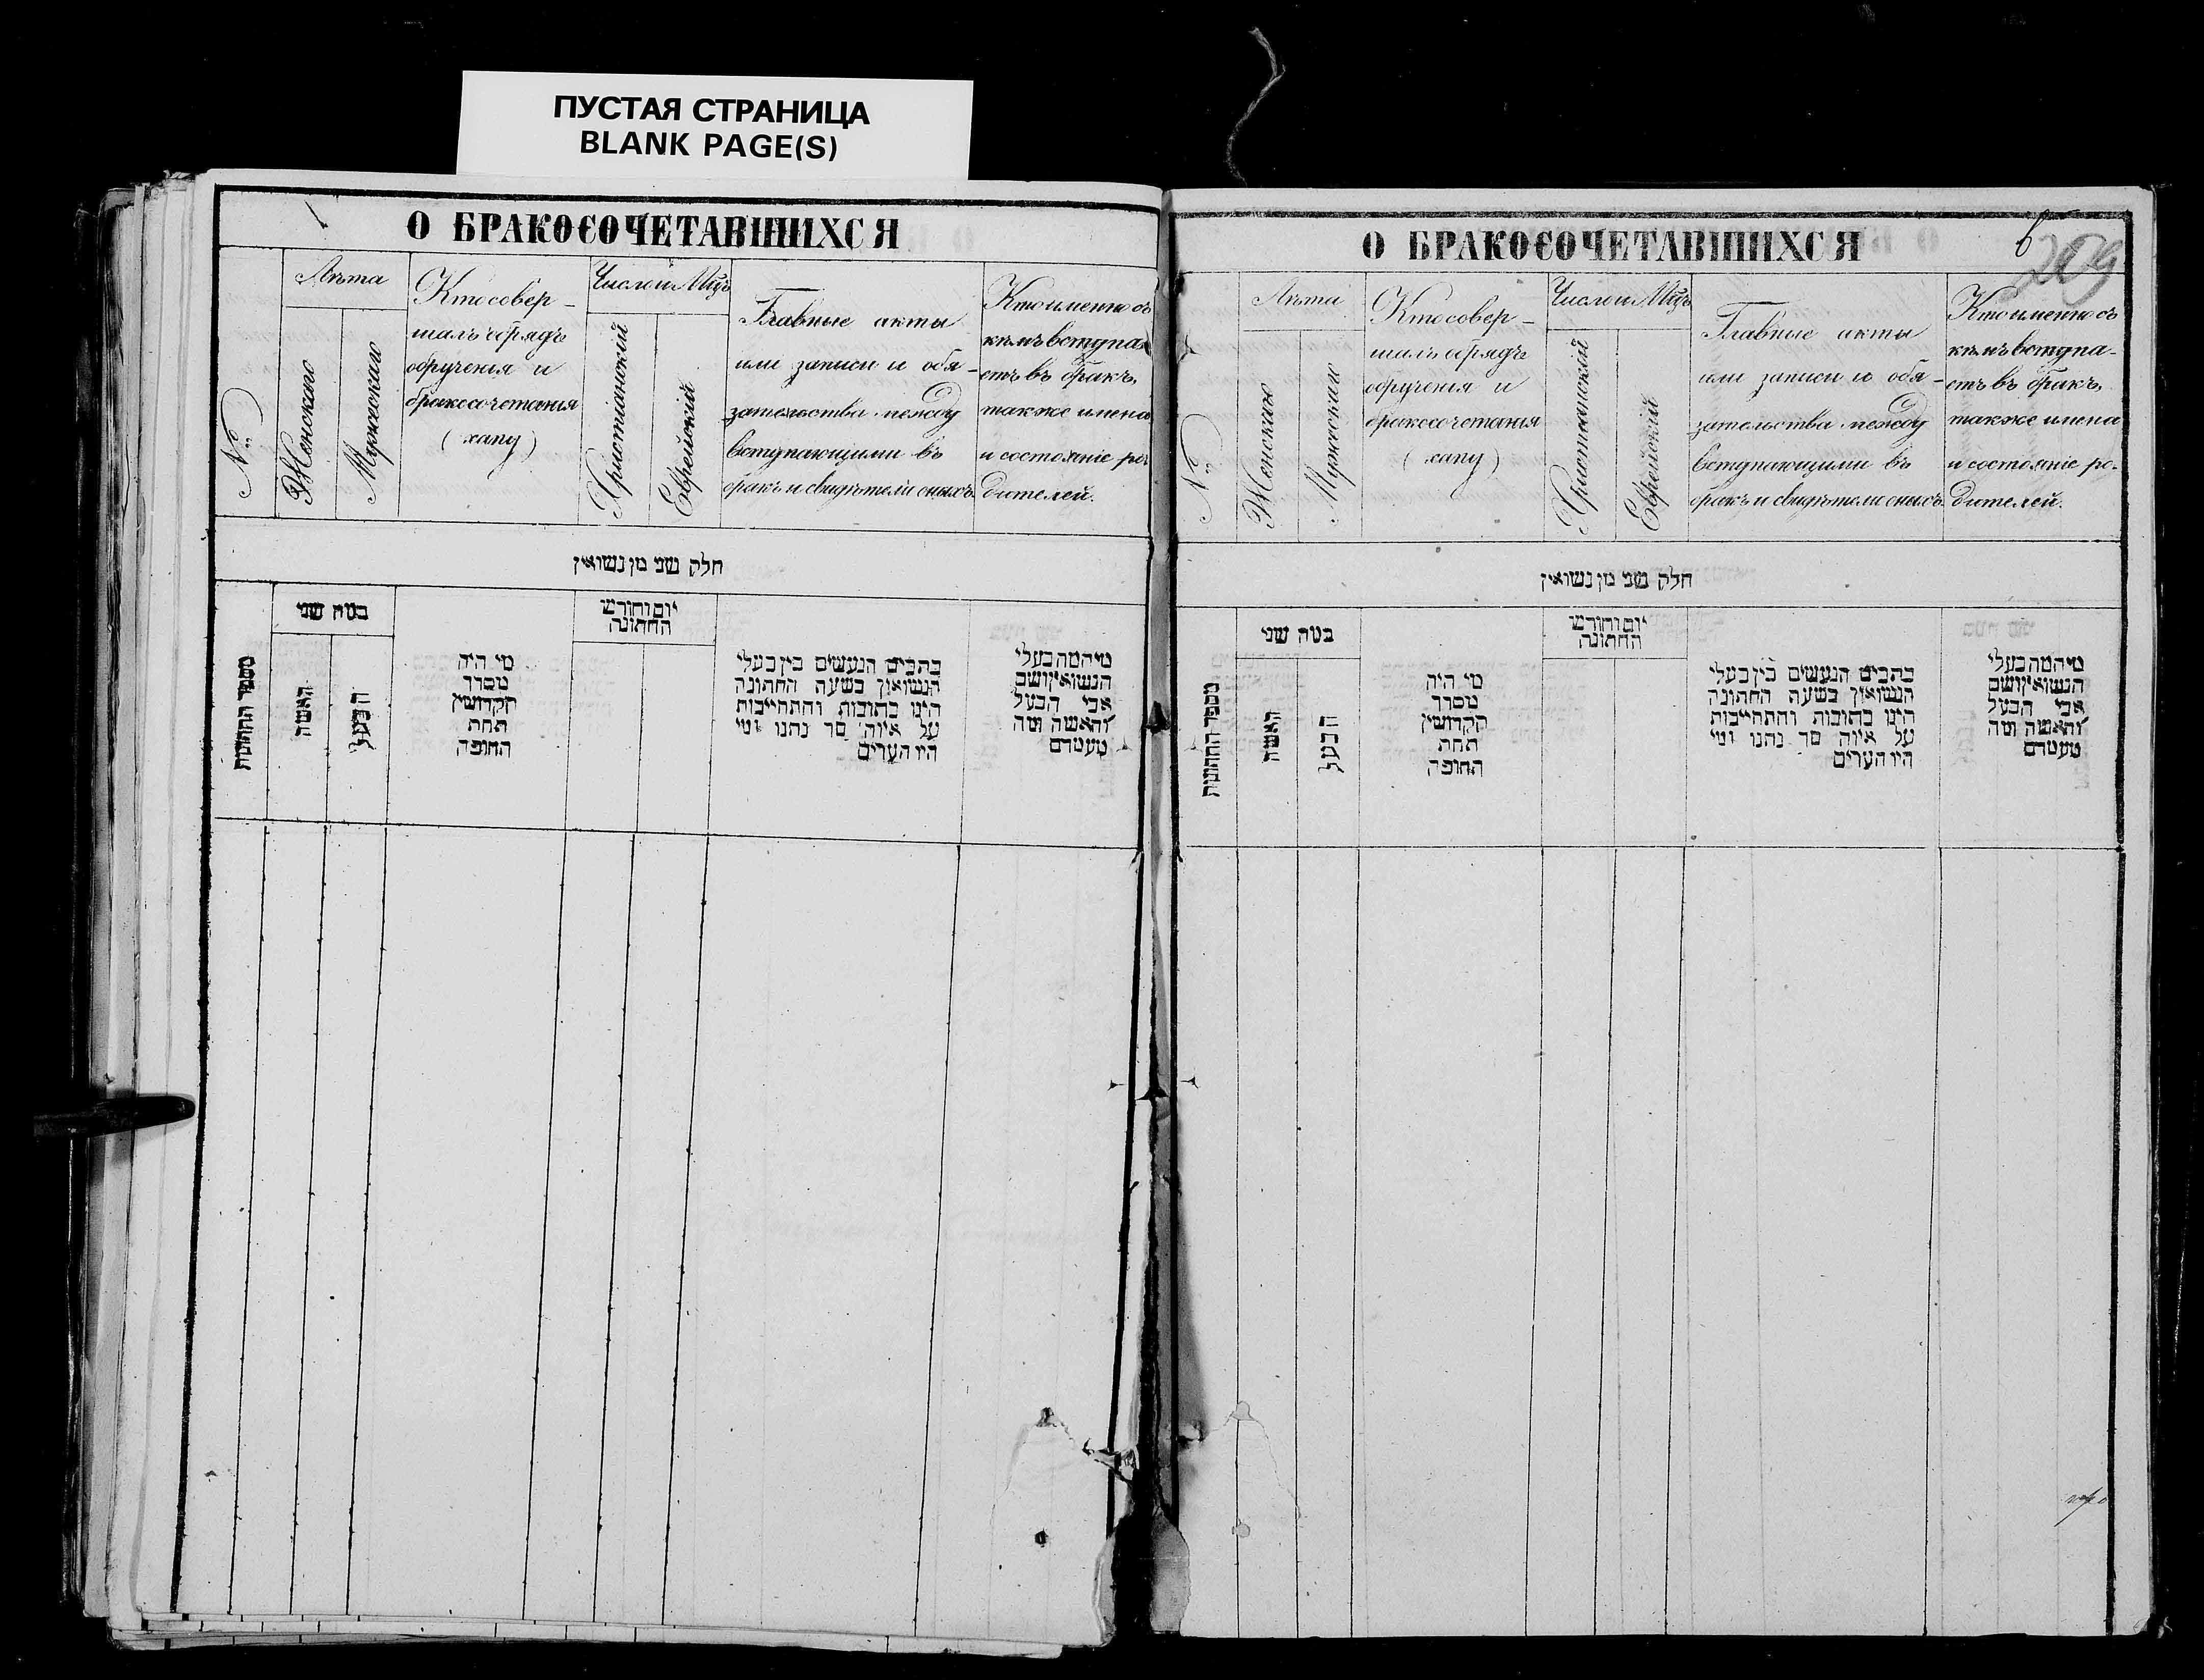 ПУСТАЯ СТРАНИЦА
BLANK PAGE(S)
О БРАКОСОЧЕТАВШИХСЯ
№
Лѣта
Женскаго
Мужскаго
Кто совер-
шалъ обрядъ
обрученія и
бракосочетанія
(хапу)
Число и Мцъ
Христіанскій
Еврейскій
Главные акты
или записи и обя-
зательства между
вступающими въ
бракъ и свидѣтели оныхъ
Кто именно съ
кѣмъ вступа-
етъ въ бракъ,
также имена
и состояніе ро-
дителей.
חלק שני מן נשואין
מספר החתונות
במה שני
האשה
הבעל
מי היה
מסדר
הקדושין
תחת
החופה
יום וחודש
החתונה
כתבים הנעשים בין בעלי
הנשואין בשעה החתונה
היינו כתובות והתחייבות
על איזה סך נתנו ומי
היו העדים
מי המה בעלי
הנשואין ושם
אבי הבעל
והאשה ומה
מעמדם
О БРАКОСОЧЕТАВШИХСЯ
6
209
№
Лѣта
Женскаго
Мужскаго
Кто совер-
шалъ обрядъ
обрученія и
бракосочетанія
(хапу)
Число и Мцъ
Христіанскій
Еврейскій
Главные акты
или записи и обя-
зательства между
вступающими въ
бракъ и свидѣтели оныхъ
Кто именно съ
кѣмъ вступа-
етъ въ бракъ,
также имена
и состояніе ро-
дителей.
חלק שני מן נשואין
מספר החתונות
במה שני
האשה
הבעל
מי היה
מסדר
הקדושין
תחת
החופה
יום וחודש
החתונה
כתבים הנעשים בין בעלי
הנשואין בשעה החתונה
היינו כתובות והתחייבות
על איזה סך נתנו ומי
היו העדים
מי המה בעלי
הנשואין ושם
אבי הבעל
והאשה ומה
מעמדם